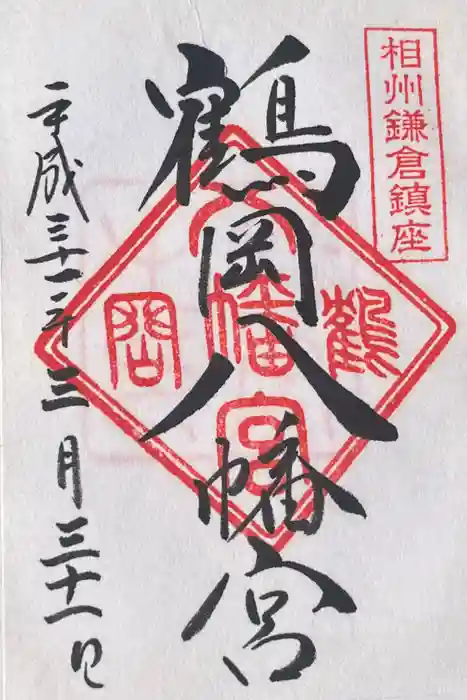 相州鎌倉鎮座
鶴岡八幡宮
鶴岡八幡宮
平成三十一年三月三十一日